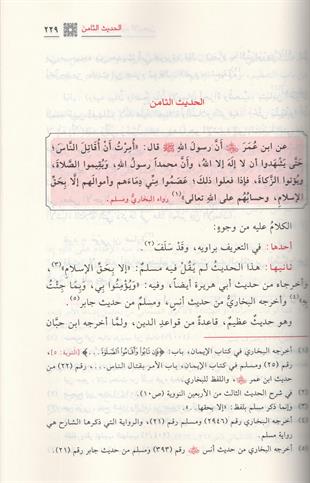 الحديث الثامن
٢٢٩
الحديث الثامن
عن ابن عُمَرَ ﷺ أَنَّ رسولَ اللهِ ﷺ قال: «أُمِرْتُ أَنْ أُقَاتِلَ النَّاسَ؛
حَتَّى يَشْهَدوا أن لا إِلَهَ إِلا اللهُ، وأَنَّ محمداً رسولُ اللهِ، ويُقِيموا الصَّلاةَ،
ويُؤتوا الزَّكاةَ، فإذا فعلوا ذلكَ؛ عَصَمُوا مِنِّي دِمَاءَهم وأموالَهم إلَّا بِحَقِّ
الإسلامِ، وحسابُهُم على اللهِ تعالى»(١) رواه البخاريُّ ومسلم.
الكلامُ عليه من وجوهٍ:
أحدها: في التعريف براويه، وقَدْ سَلَفَ(٢)
ثانيها: هذا الحديث لم يَقُلْ فيه مسلمٌ: «إلا بِحَقِّ الإسلامِ»(٣)،
وأخرجاه من حديث أبي هريرة أيضاً، وفيه: «ويُؤْمِنُوا بِي، وَبِمَا جِئْتُ
بِهِ»(٤) وأخرجه البخاريُّ من حديث أنسٍ، ومسلم من حديث جابر(٥).
وهو حديثٌ عظيمٌ، قاعدةٌ من قواعدِ الدين، ولمَّا أخرجه ابن حبَّان
(١) أخرجه البخاري في كتاب الإيمان، باب: ﴿فَإِن تَابُوا وَأَقَامُوا الصَّلَوٰةَ...﴾ [التوبة: ٥]،
رقم (٢٥) ومسلم في كتاب الإيمان، باب الأمر بقتال الناس..، رقم (٢٢) من
حديث ابن عمر، واللفظ للبخاري.
(٢) في شرح الحديث الثالث من الأربعين النووية (ص١٠).
(٣) وإنما ذكر مسلم بلفظ: «إلا بحقها».
(٤) أخرجه البخاري رقم (٢٩٤٦) ومسلم رقم (٢١)، والرواية التي ذكرها الشارح هي
رواية مسلم.
(٥) أخرجه البخاري من حديث أنس رقم (٣٩٣) ومسلم من حديث جابر رقم (٢١).